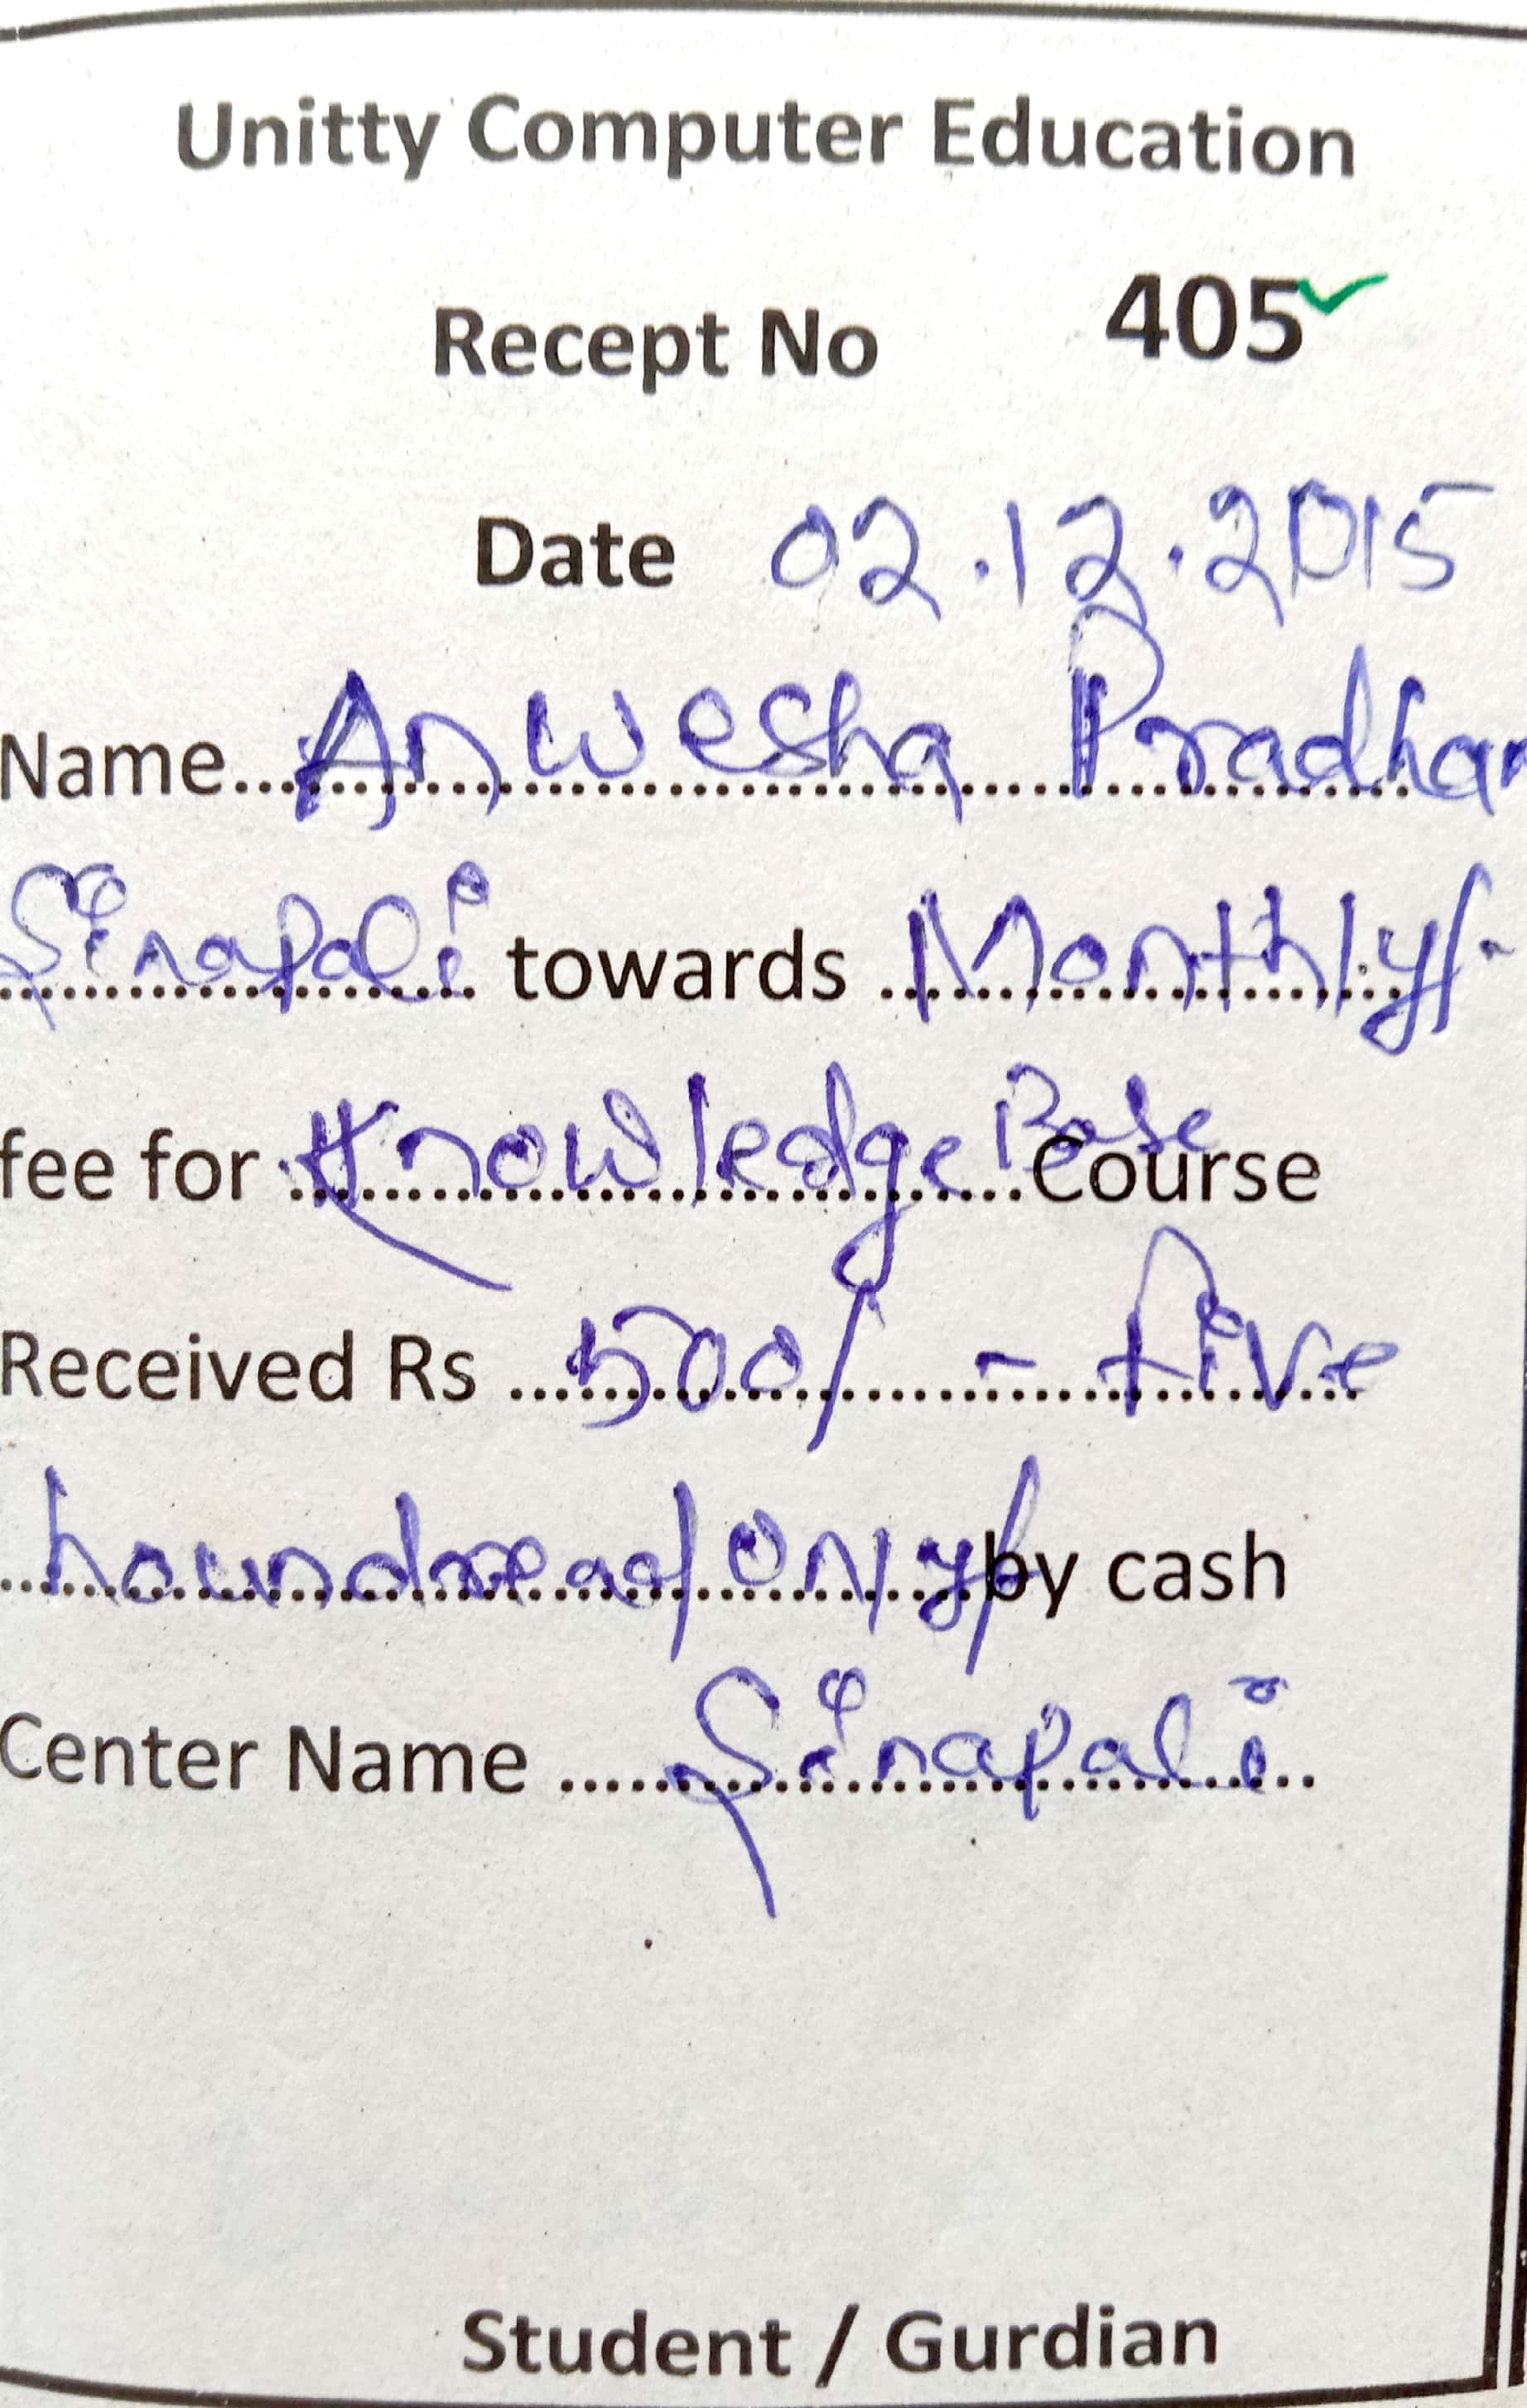 Unitty Computer Education
Recept No 405
Date 02.12.2015
Name.......Anwesha Pradhan
Sinapali towards Monthly/-
fee for Knowledge Base Course
Received Rs 500/ - five
houndread only/ by cash
Center Name Sinapali
Student / Gurdian